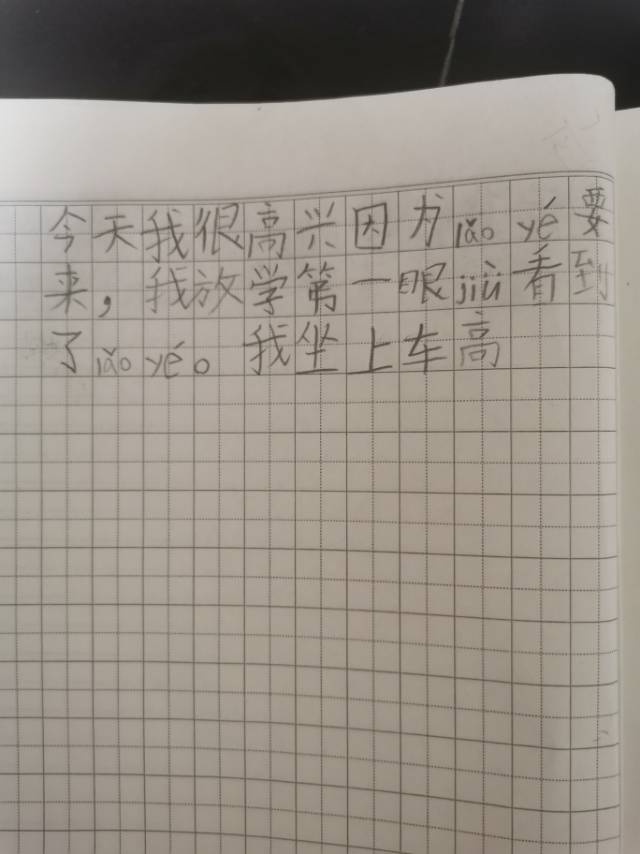 今天我很高兴因为lǎo yé要
来，我放学第一眼jiù看到
了lǎo yé。我坐上车高